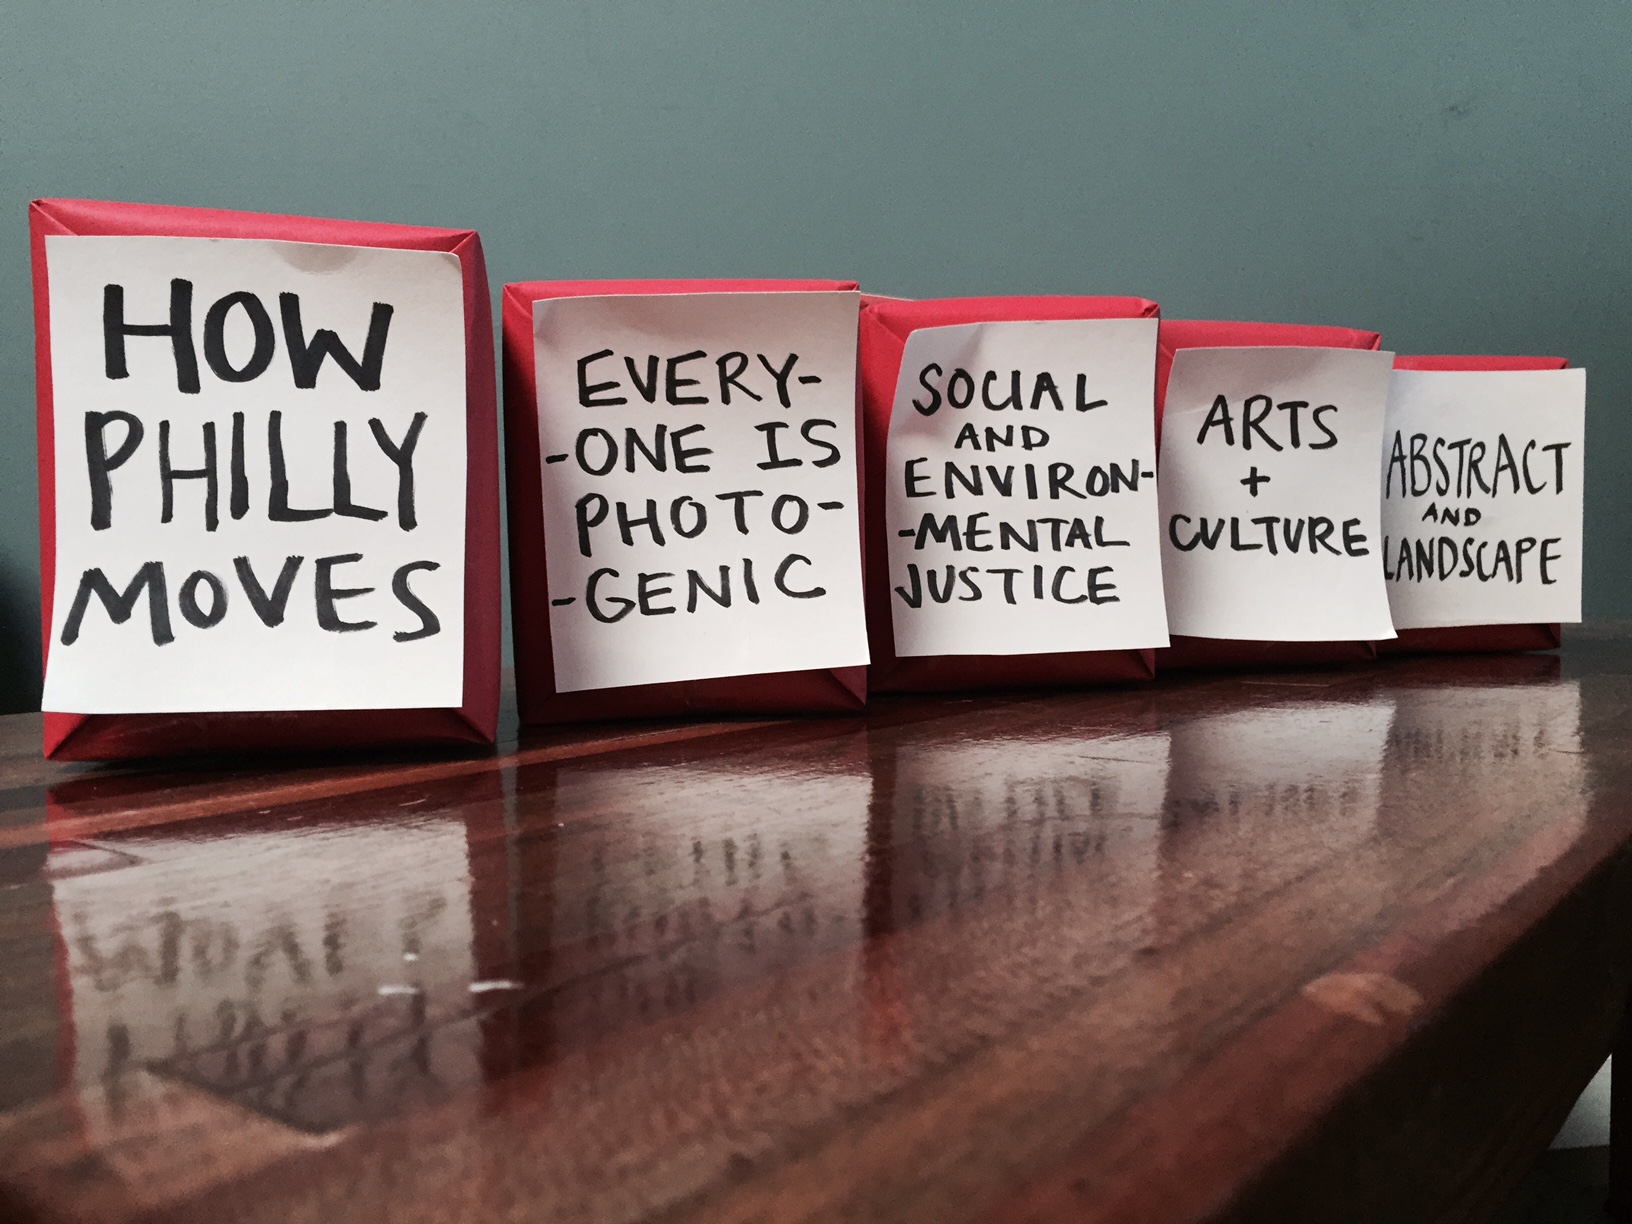 HOW
PHILLY
MOVES
EVERY-
-ONE IS
PHOTO-
-GENIC
SOCIAL
AND
ENVIRON-
-MENTAL
JUSTICE
ARTS
+
CULTURE
ABSTRACT
AND
LANDSCAPE